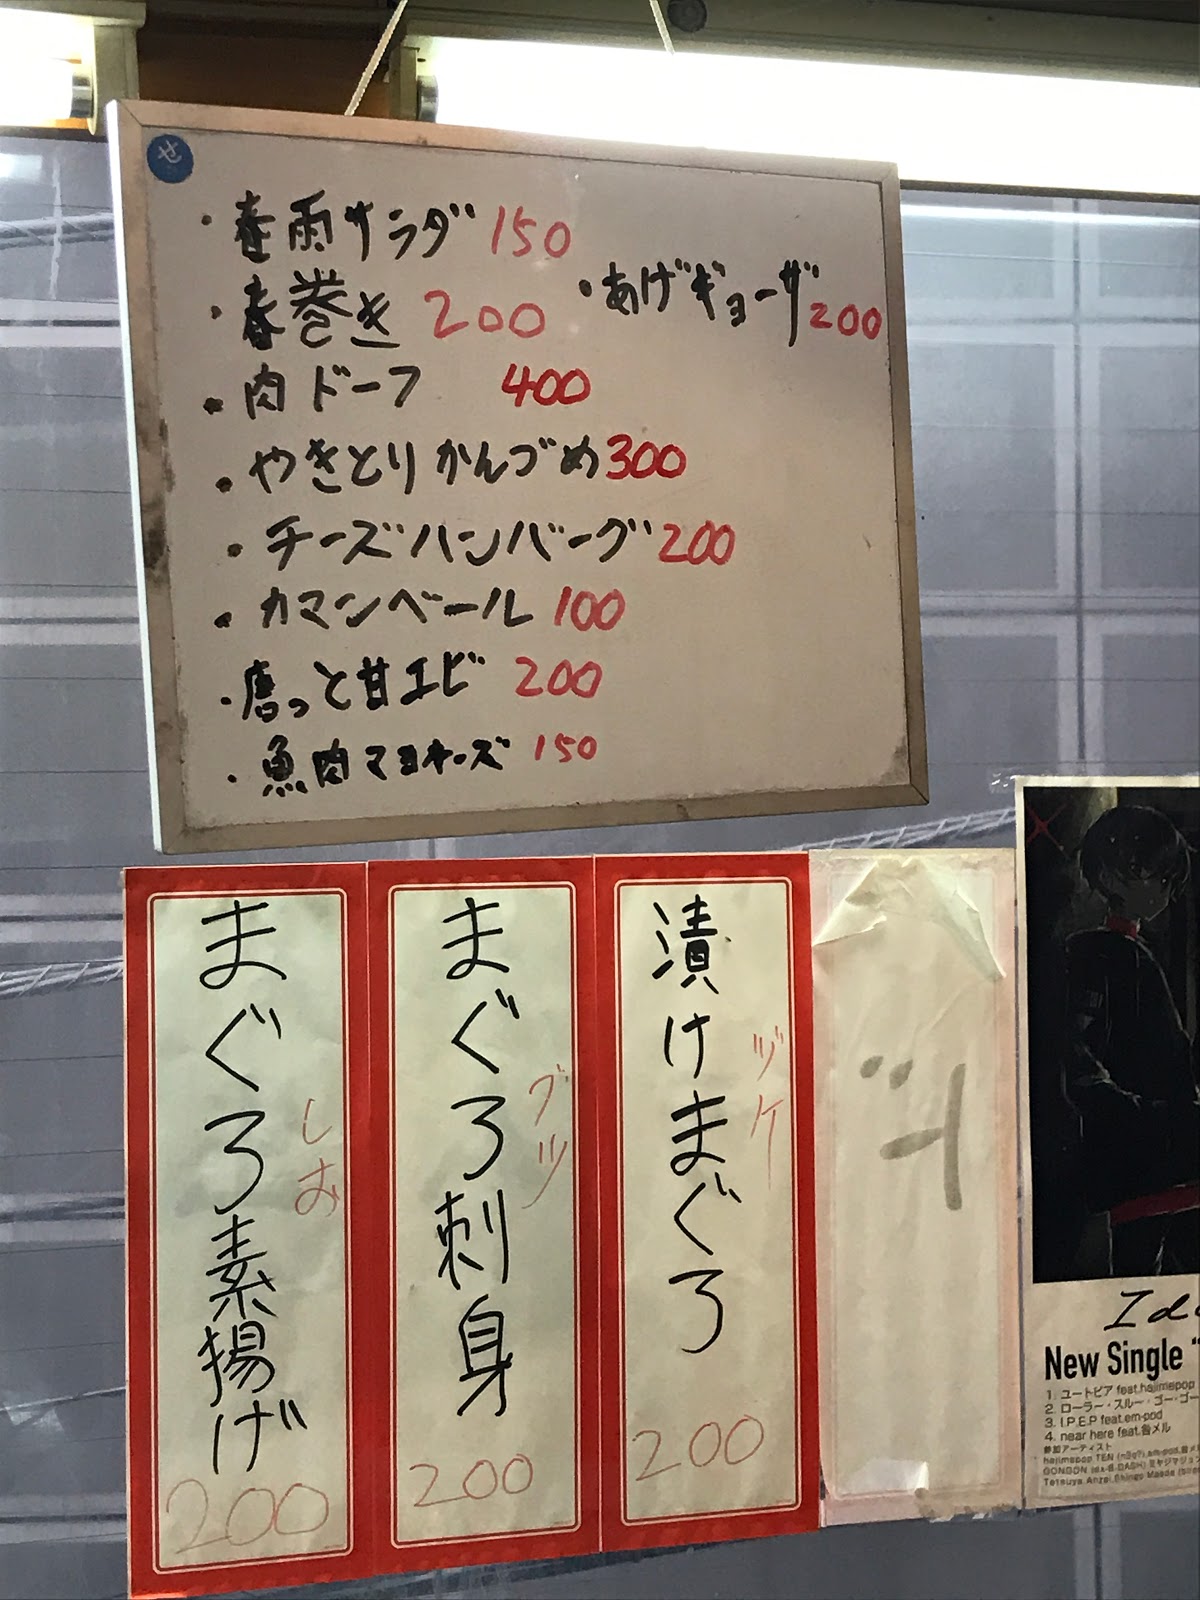 せ
・春雨サラダ 150
・春巻き 200 ・あげギョーザ 200
・肉ドーフ 400
・やきとりかんづめ 300
・チーズハンバーグ 200
・カマンベール 100
・唐っと甘エビ 200
・魚肉マヨネーズ 150
まぐろ素揚げ
しお
200
まぐろ刺身
ブツ
200
漬けまぐろ
ヅケ
200
New Single "
1. ユートピア feat.hajimepop
2. ローラー・スルー・ゴー・ゴー
3. I.P.E.P feat.em-pod
4. near here feat.咎メル
参加アーティスト